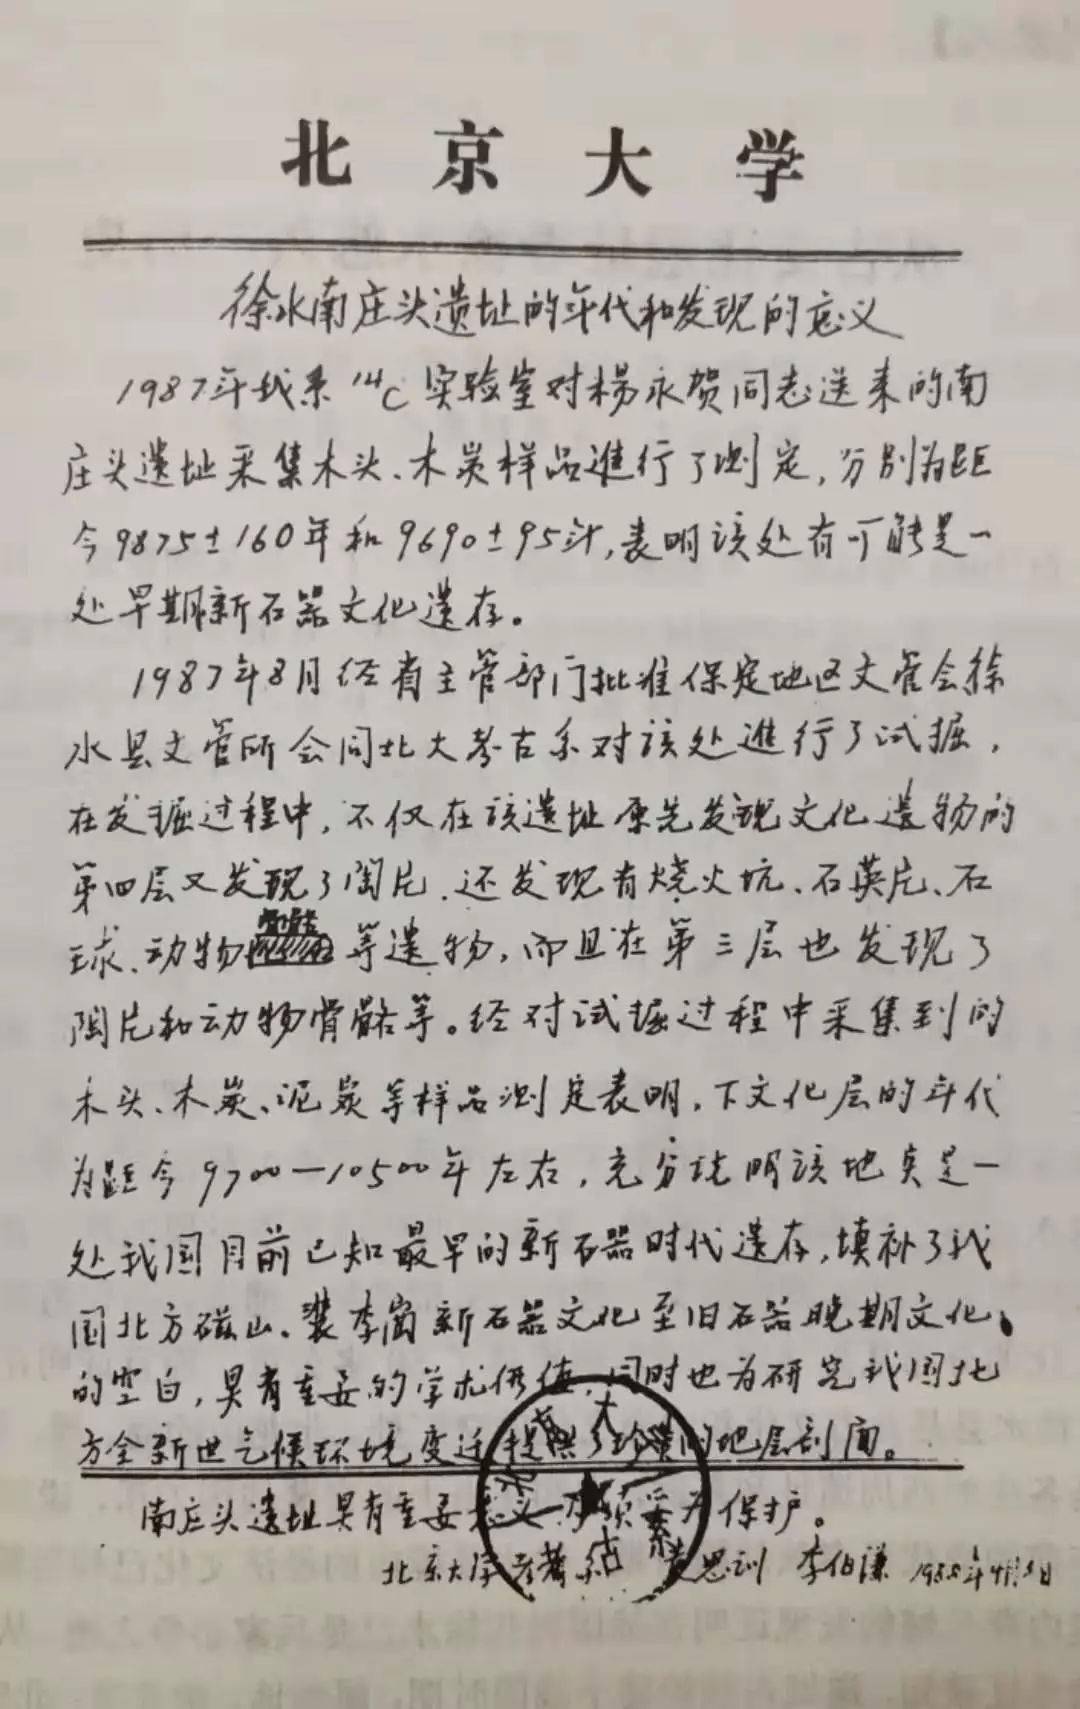 北京大学
徐水南庄头遗址的年代和发现的意义
1987年我系14C实验室对杨永贺同志送来的南
庄头遗址采集木头、木炭样品進行了测定，分别为距
今9875±160年和9690±95年，表明该处有可能是一
处早期新石器文化遗存。
1987年8月经省主管部门批准保定地区文管会徐
水县文管所会同北大考古系对该处進行了试掘，
在发掘过程中，不仅在该遗址原先发现文化遗物的
第四层又发现了陶片，还发现有烧火坑、石英片、石
球、动物等遗物，而且在第三层也发现了
陶片和动物骨骼等。经对试掘过程中采集到的
木头、木炭、泥炭等样品测定表明，下文化层的年代
为距今9700—10500年左右，充分说明该地实是一
处我国目前已知最早的新石器时代遗存，填补了我
国北方磁山、裴李岗新石器文化至旧石器晚期文化
的空白，具有重要的学术价值，同时也为研究我国北
方全新世气候环境变迁提供了珍贵的地层剖面。
南庄头遗址具有重要意义 必须采为保护。
北京大学考古系 黄思训 李伯谦 1988年4月5日